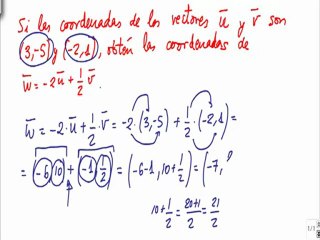 Si las coordenadas de los vectores u̅ y v̅ son
(3,-5) y (-2,1), obtén las coordenadas de
w̅ = -2u̅ + 1/2 v̅.
w̅ = -2·u̅ + 1/2·v̅ = -2·(3,-5) + 1/2·(-2,1) =
= (-6,10) + (-1,1/2) = (-6-1, 10+1/2) = (-7,
10+1/2 = 20+1/2 = 21/2